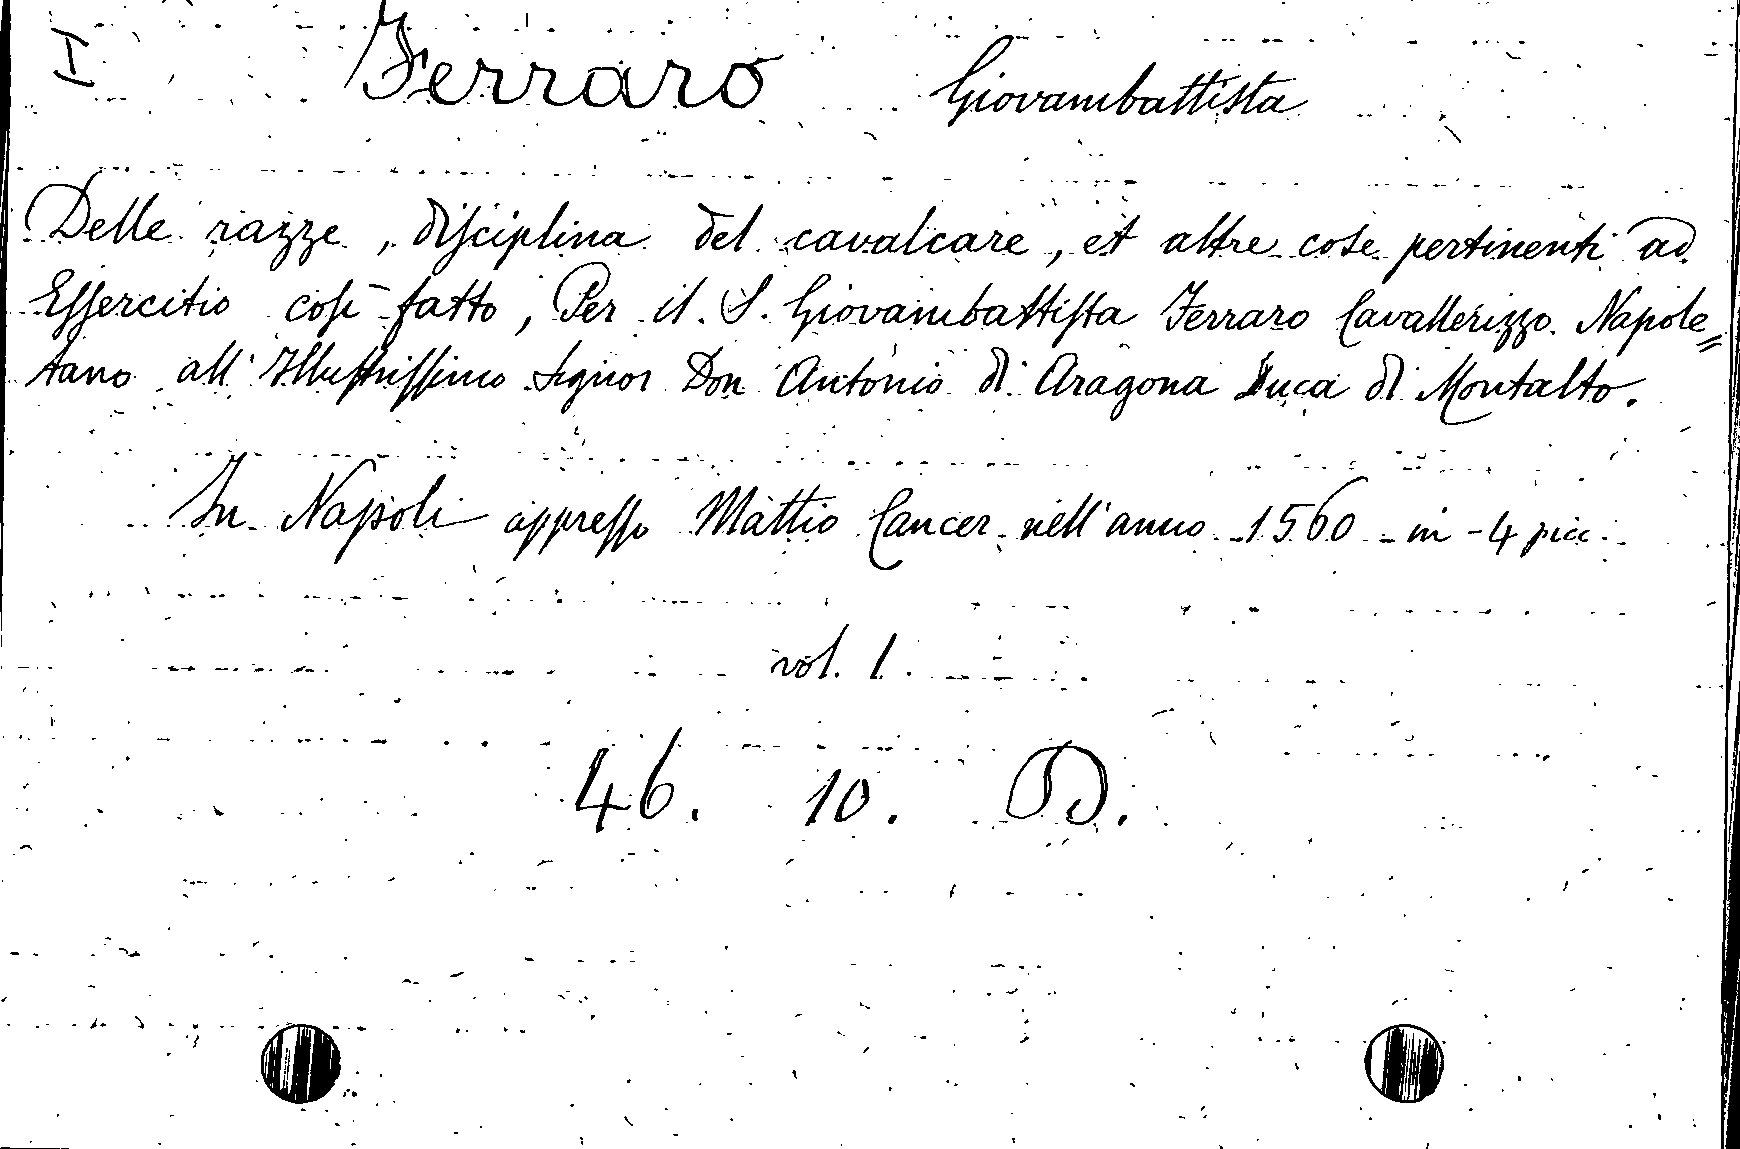 I Ferraro Giovambattista
Delle razze, diſciplina del cavalcare, et altre coſe pertinenti ad
Eſſercitio coſi fatto, Per il S. Giovambattiſta Ferraro Cavallerizzo Napole=
tano all' Illuſtriſſimo Signor Don Antonio di Aragona Duca di Montalto.
In Napoli appreſſo Mattio Cancer nell'anno 1560 - in - 4 picc.
vol. 1.
46. 10. D.